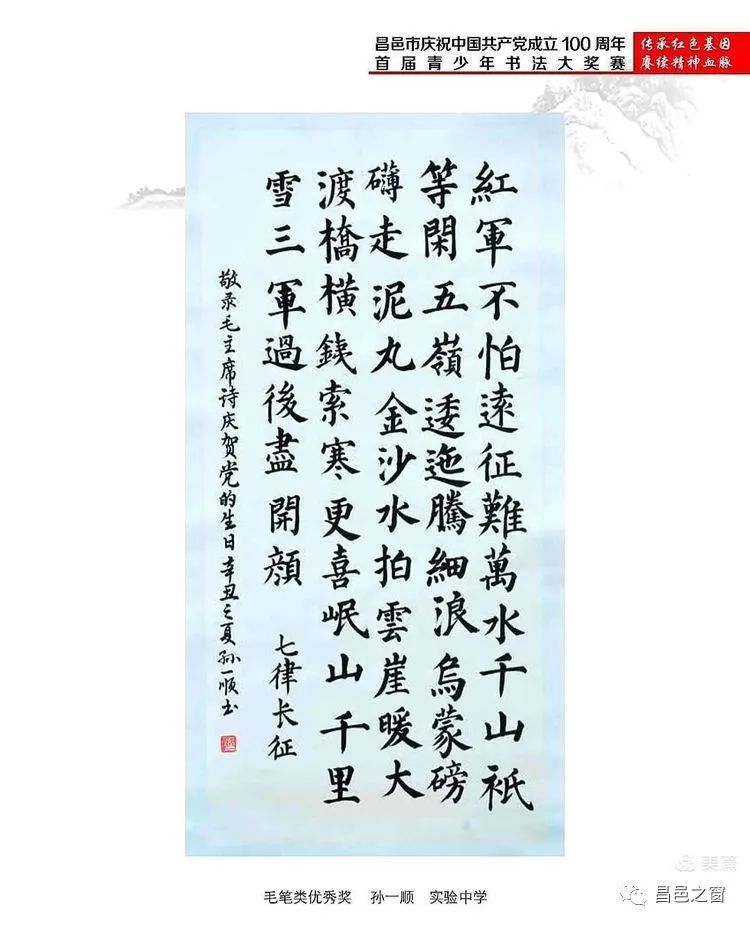 昌邑市庆祝中国共产党成立100周年
首届青少年书法大奖赛
传承红色基因
赓续精神血脉
紅軍不怕遠征難萬水千山祇
等閑五嶺逶迤騰細浪烏蒙磅
礴走泥丸金沙水拍雲崖暖大
渡橋橫鐵索寒更喜岷山千里
雪三軍過後盡開顔
七律长征
敬录毛主席诗庆贺党的生日辛丑之夏孙一顺书
毛笔类优秀奖 孙一顺 实验中学
美篇
昌邑之窗